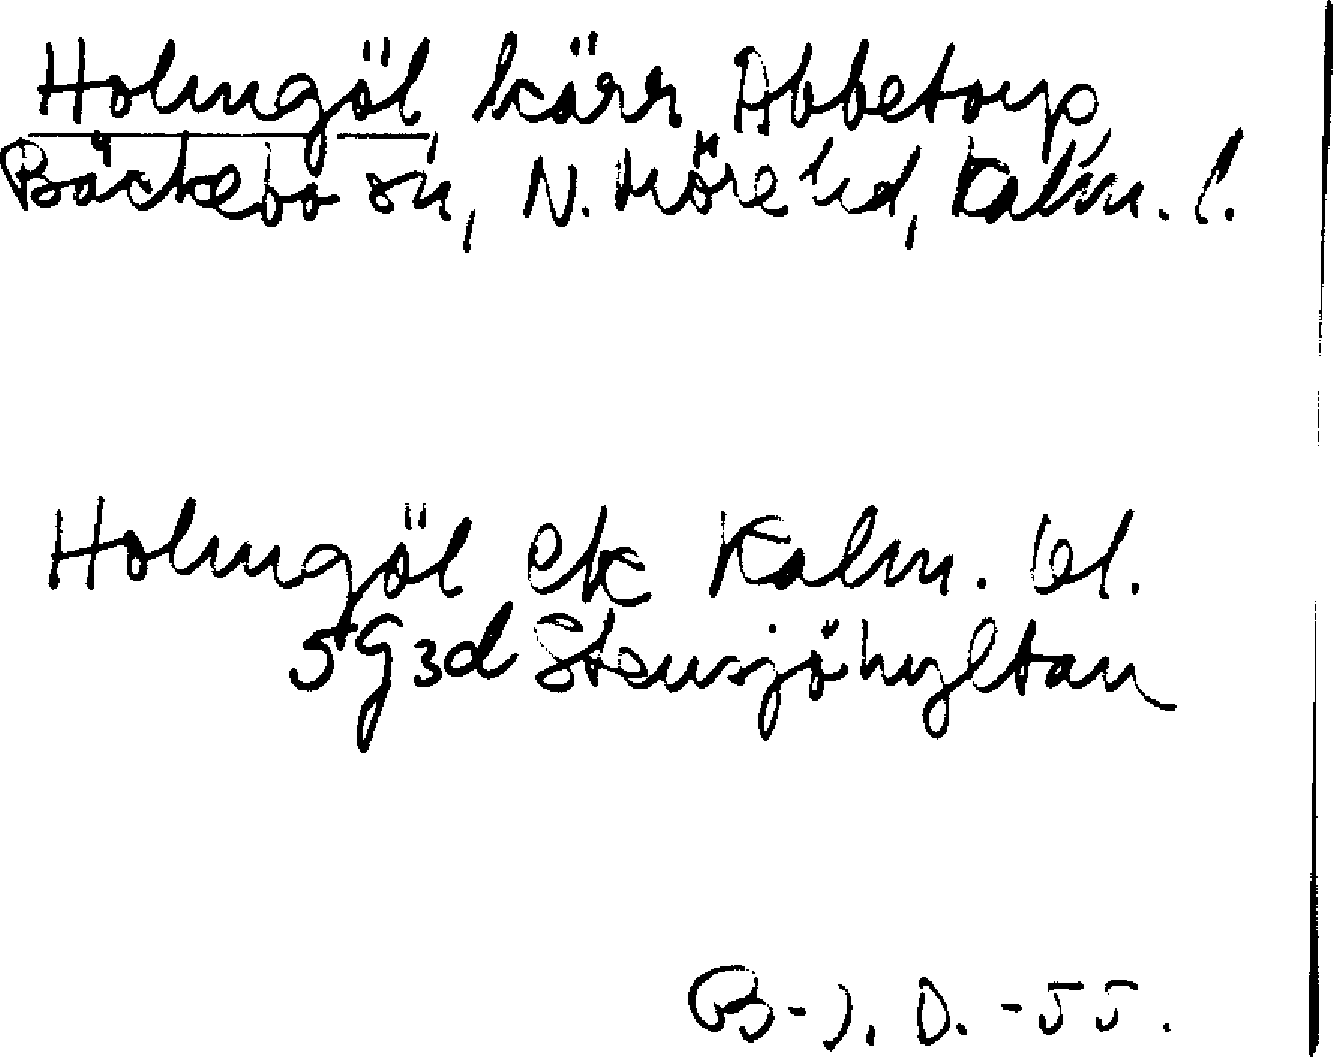 Holmgöl kärr Abbetorp,
Bäckebo sn, N. Möre hd, Kalm. l.
Holmgöl ek Kalm. bl.
5G3d Stensjöhyltan
B-J. D. -55.